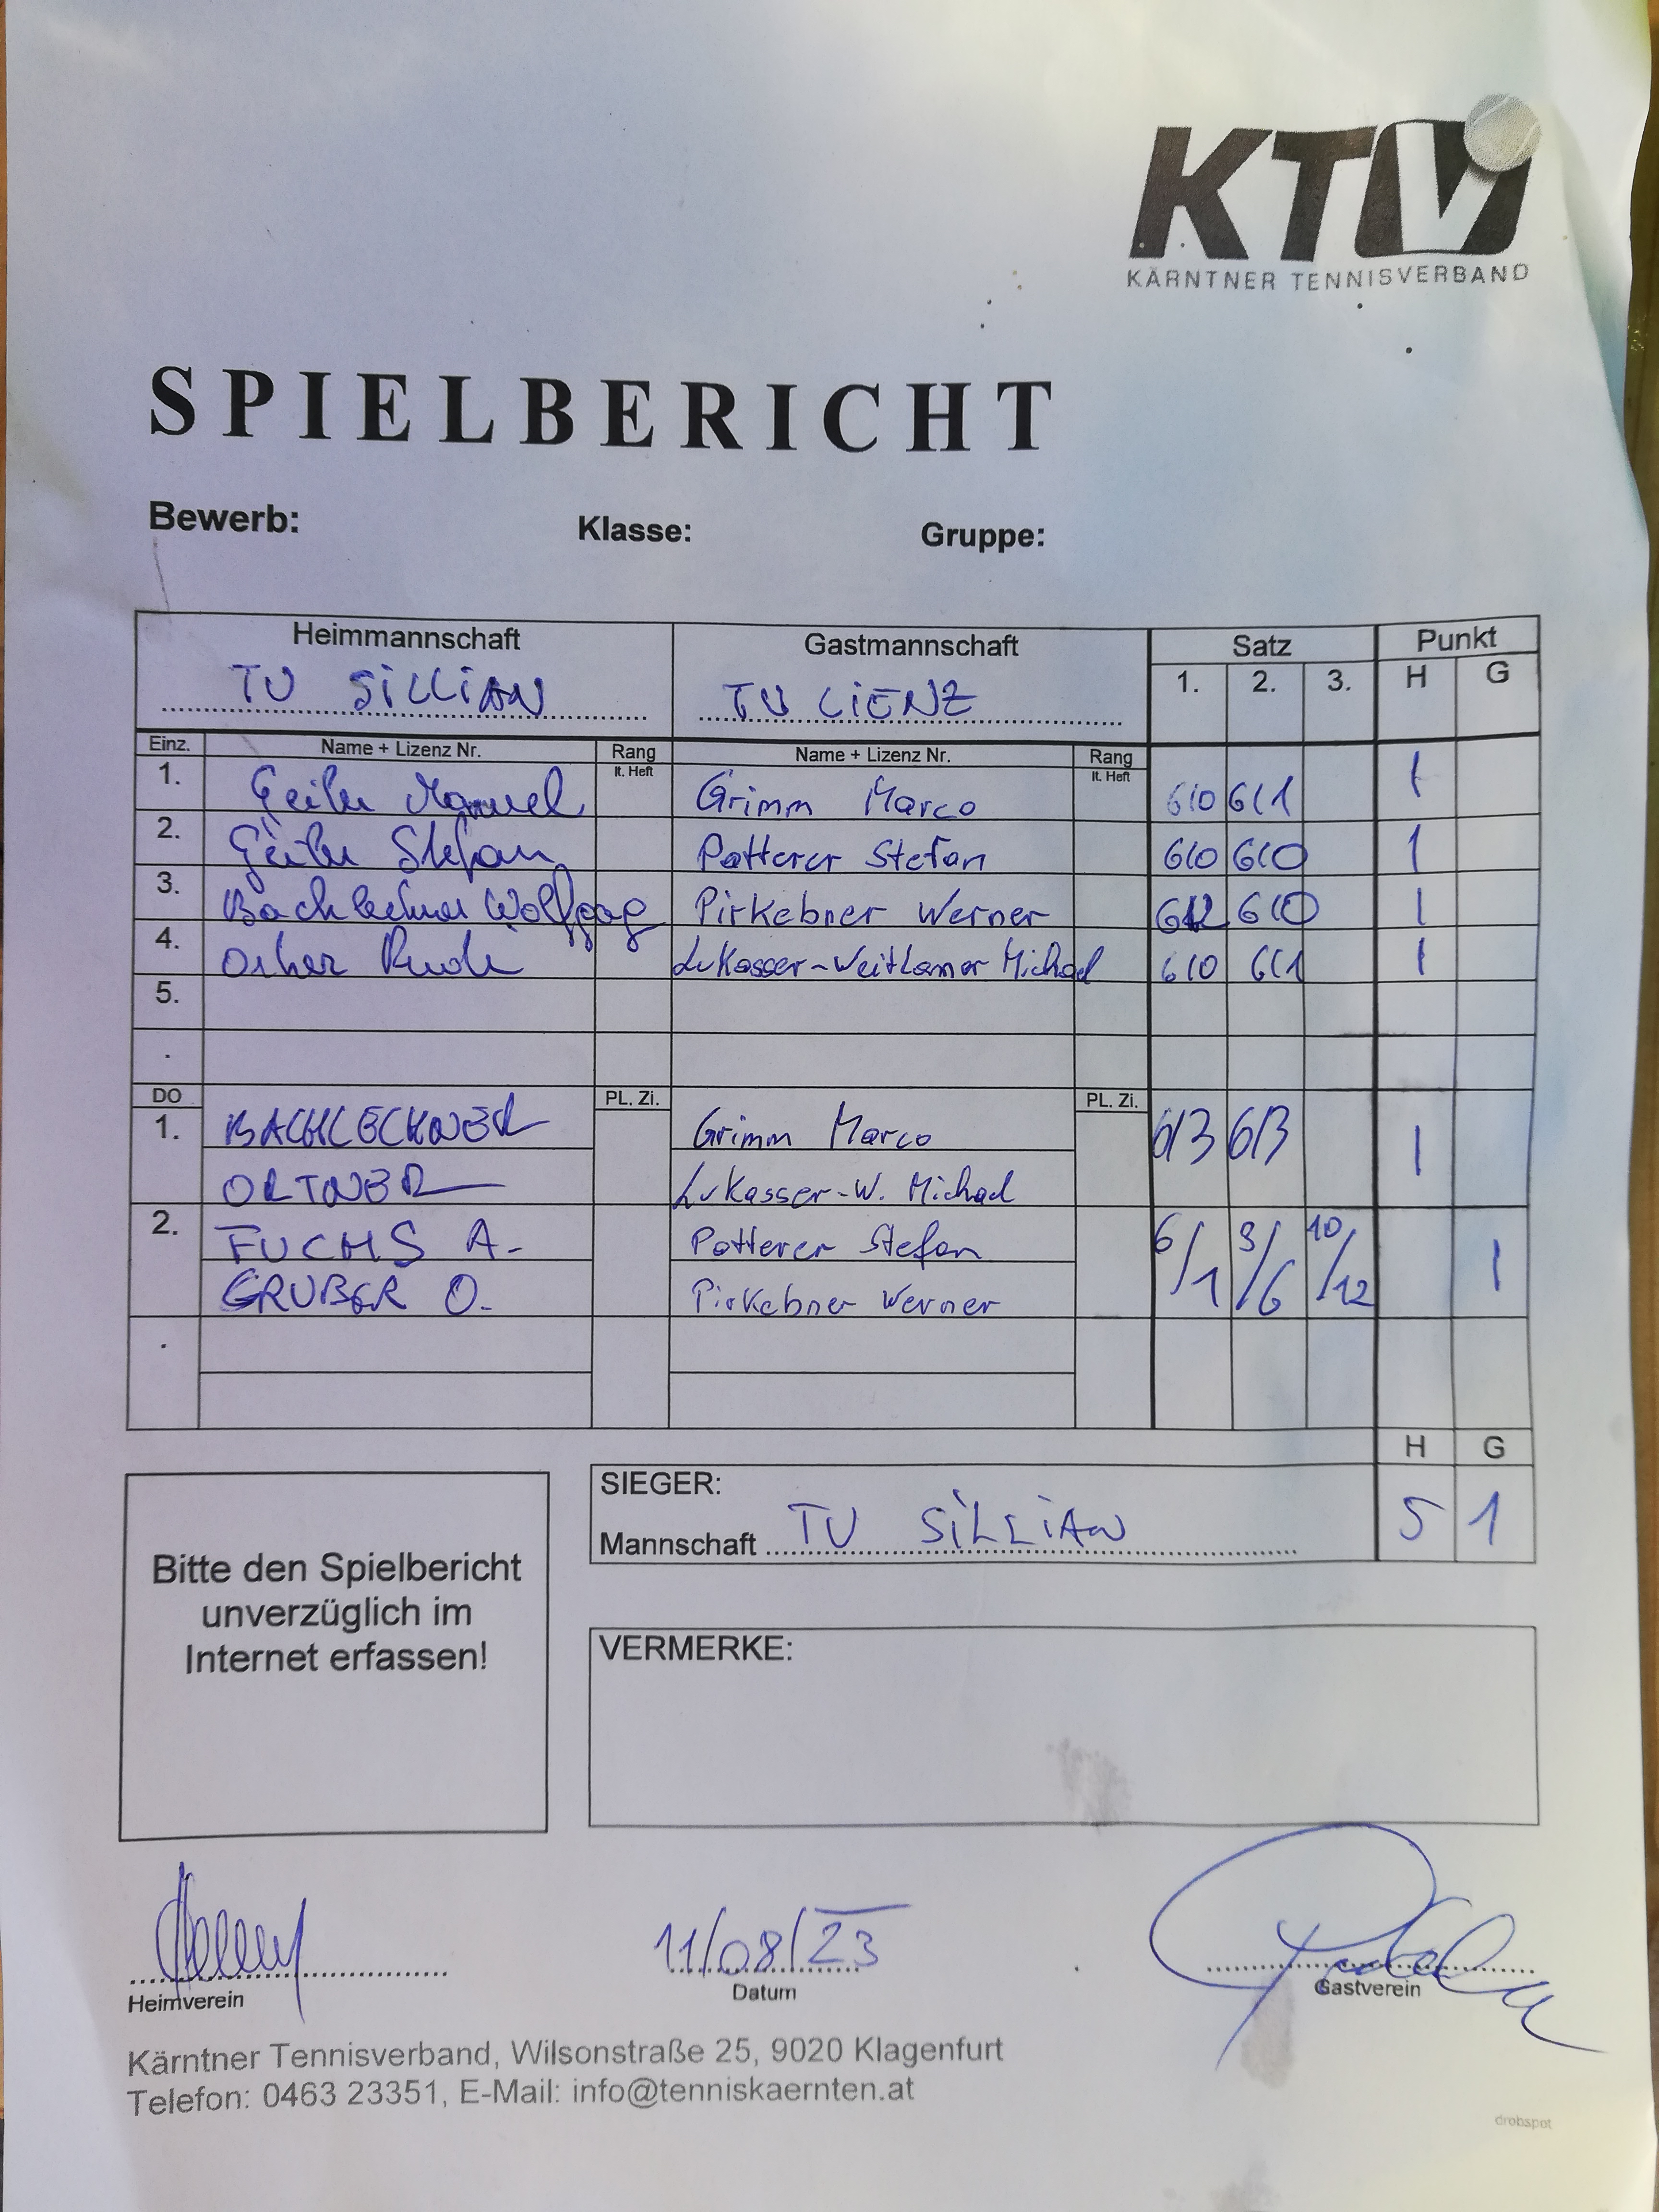 KTV
KÄRNTNER TENNISVERBAND
SPIELBERICHT
Bewerb: Klasse: Gruppe:
Heimmannschaft Gastmannschaft Satz Punkt
TU SILLIAN TU LIENZ 1. 2. 3. H G
Einz. Name + Lizenz Nr. Rang lt. Heft Name + Lizenz Nr. Rang lt. Heft
1. Manuel Grimm Marco 6/0 6/1 1
2. Stefan Potterer Stefan 6/0 6/0 1
3. Bachlechner Wolfgang Pirkebner Werner 6/2 6/0 1
4. Lukasser-Weitlaner Michael 6/0 6/1 1
5.
.
DO PL. Zi. PL. Zi.
1. BACHLECHNER Grimm Marco 6/3 6/3 1
ORTNER Lukasser-W. Michael
2. FUCHS A. Potterer Stefan 6/1 3/6 10/12 1
GRUBER O. Pirkebner Werner
.
H G
SIEGER:
Mannschaft TU SILLIAN 5 1
Bitte den Spielbericht
unverzüglich im
Internet erfassen!
VERMERKE:
11/08/23
Heimverein Datum Gastverein
Kärntner Tennisverband, Wilsonstraße 25, 9020 Klagenfurt
Telefon: 0463 23351, E-Mail: info@tenniskaernten.at
drobspot